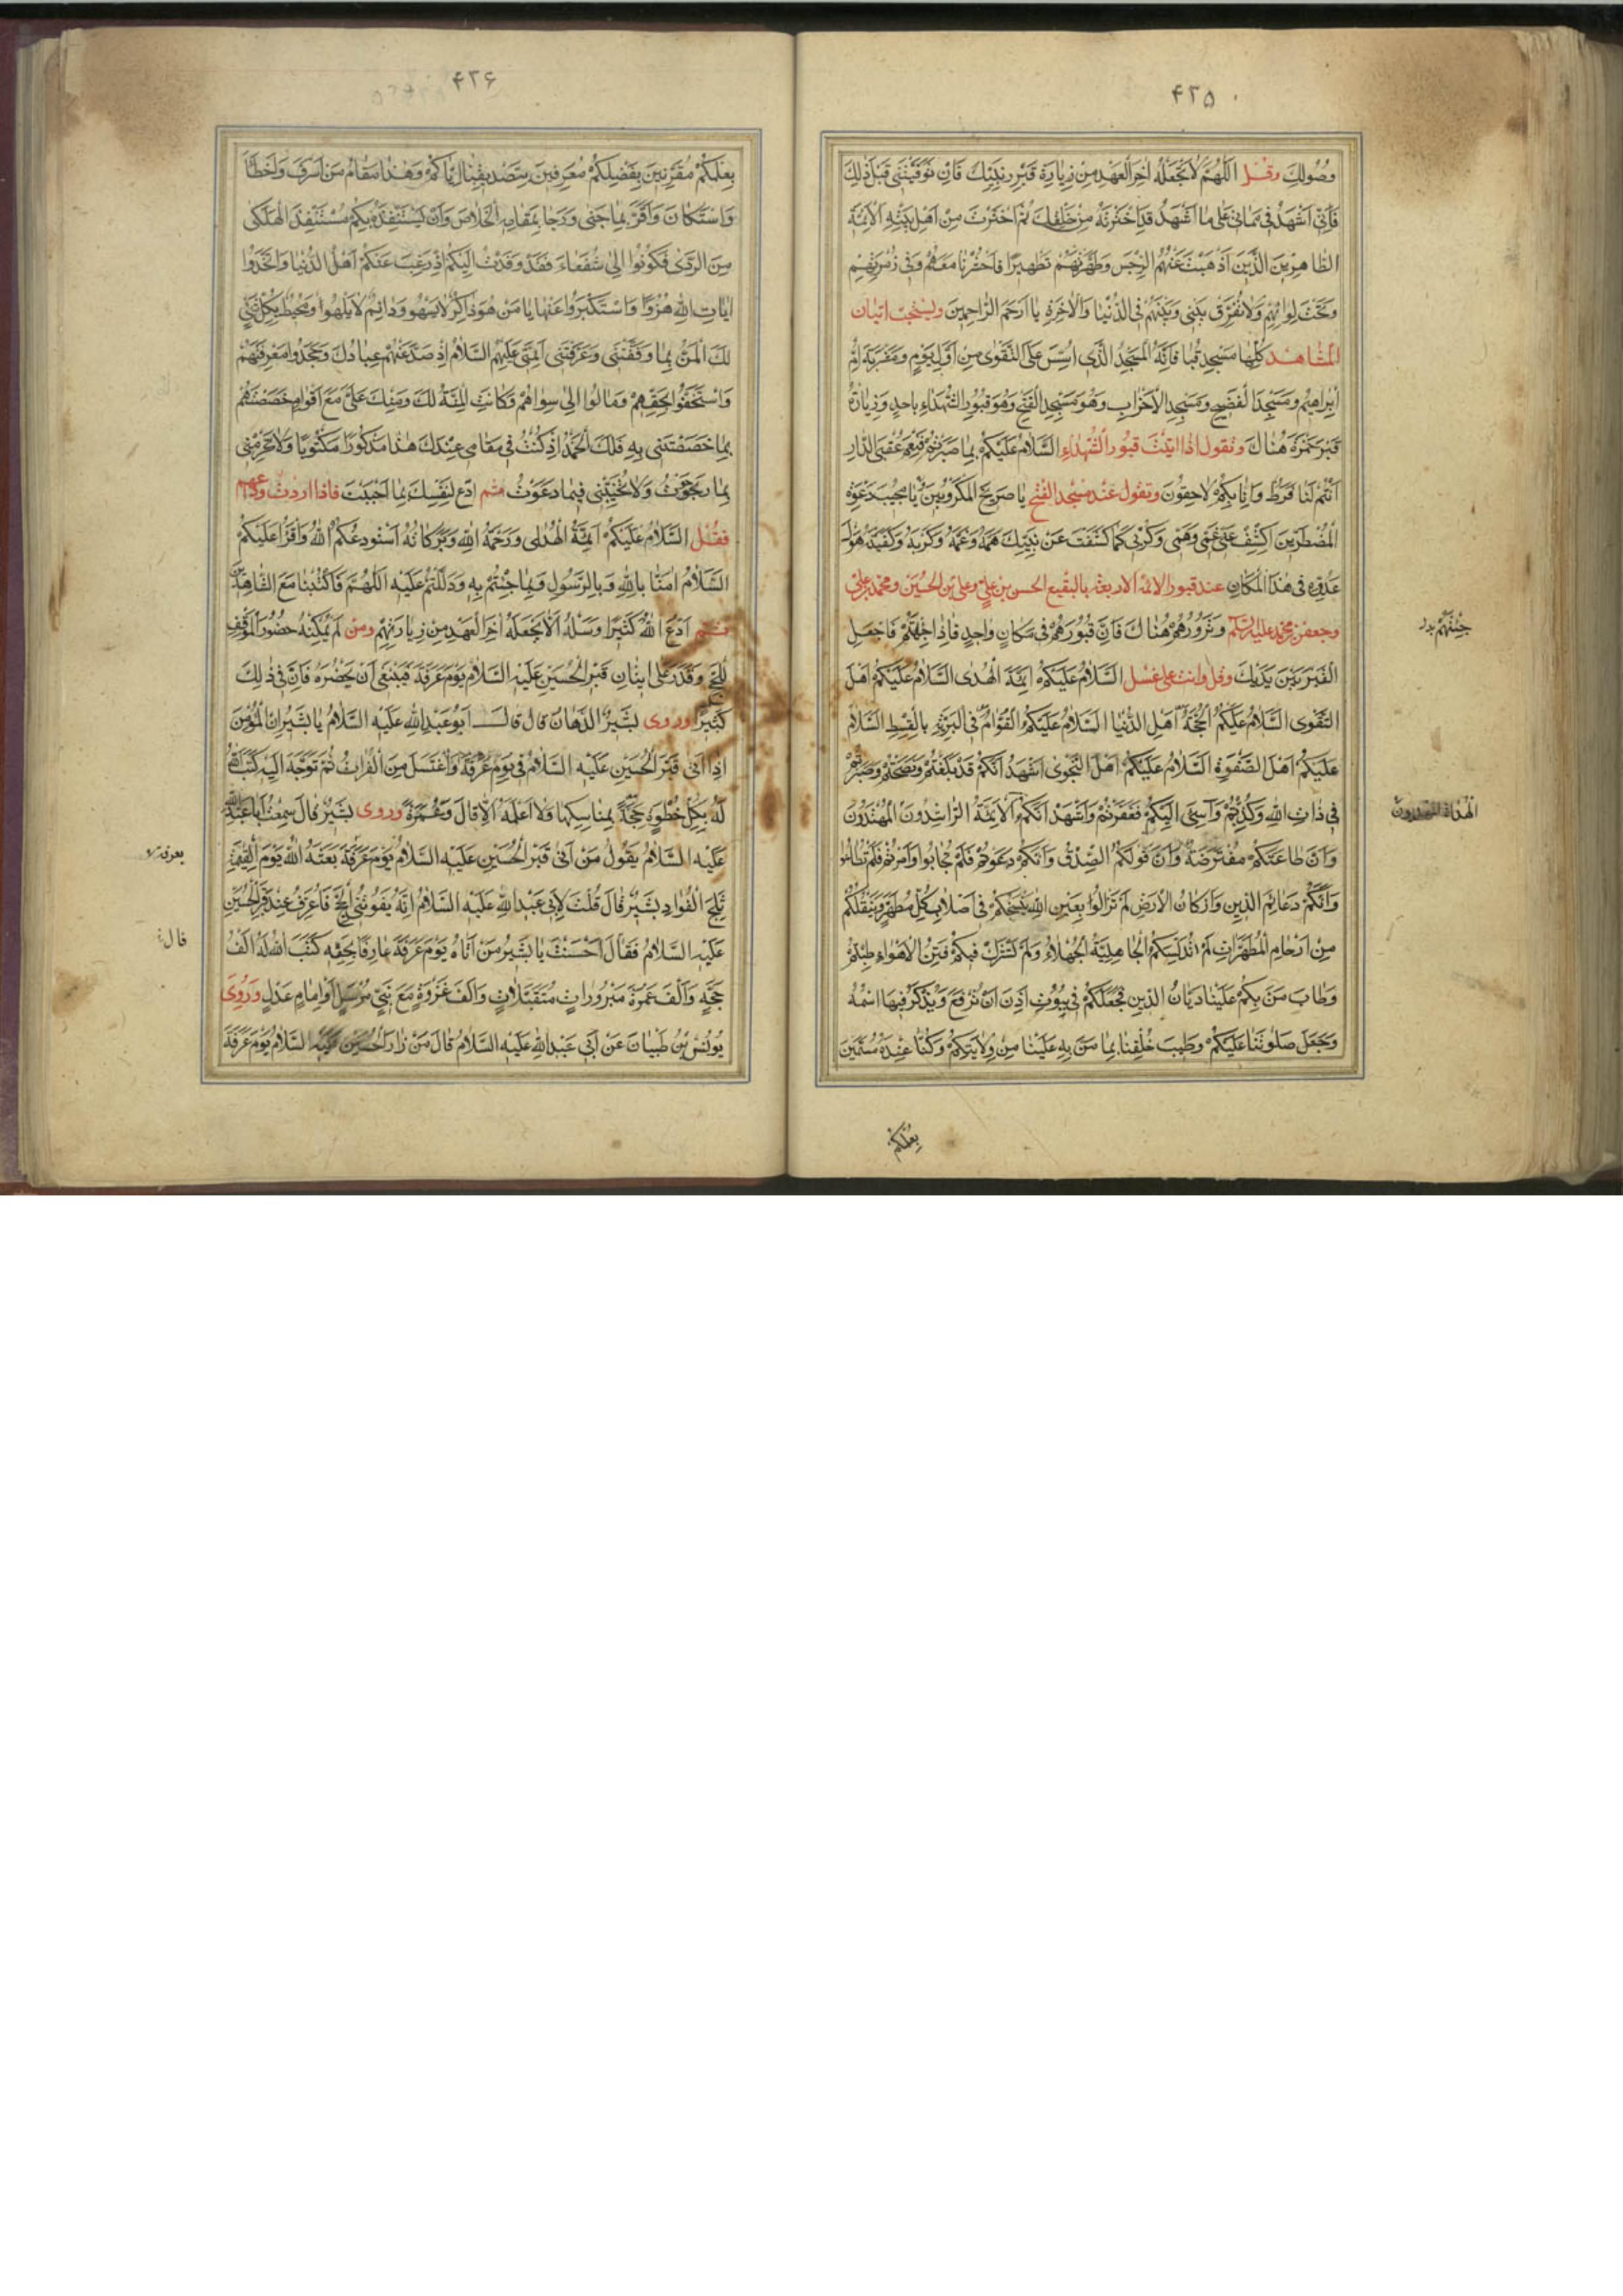 ۴۲۵
وصُولِكَ وقل اللهم لا تجعله اخر العهد من زيارة قبر نبيك فان توفيتنى قبل ذلك
فانى اشهد فى مماتى على ما اشهد قد اخترته من خلقك ثم اخترت من اهل بيته الائمة
الطاهرين الذين اذهبت عنهم الرجس وطهرتهم تطهيرا فاحشرنا معهم وفى زمرتهم
وتحت لوائهم ولا تفرق بينى وبينهم فى الدنيا والاخرة يا ارحم الراحمين ويستحب اتيان
المشاهد كلها مسجد قبا فانه المسجد الذى اسس على التقوى من اول يوم ومشربة ام
ابراهيم ومسجد الفضيح ومسجد الاحزاب وهو مسجد الفتح وهو قبور الشهداء باحد وزيارة
قبر حمزة هناك وتقول اذا اتيت قبور الشهداء السلام عليكم بما صبرتم فنعم عقبى الدار
انتم لنا فرط وانا بكم لاحقون وتقول عند مسجد الفتح يا صريخ المكروبين يا مجيب دعوة
المضطرين اكشف عنى غمى وهمى وكربى كما كشفت عن نبيك همه وغمه وكربه وكفيته هول
عدوه فى هذا المكان عند قبور الائمة الاربعة بالبقيع الحسن بن على وعلى بن الحسين ومحمد بن على
وجعفر بن محمد عليهم السلام وتزورهم هناك فان قبورهم فى مكان واحد فاذا جئتهم فاجعل
جئتهم بدل
القبر بين يديك وقل وانت على غسل السلام عليكم ائمة الهدى السلام عليكم اهل
التقوى السلام عليكم الحجة اهل الدنيا السلام عليكم القوام فى البرية بالقسط السلام
عليكم اهل الصفوة السلام عليكم اهل النجوى اشهد انكم قد بلغتم ونصحتم وصبرتم
فى ذات الله وكذبتم واسيئ اليكم فغفرتم واشهد انكم الائمة الراشدون المهتدون
الهداة
وان طاعتكم مفترضة وان قولكم الصدق وانكم دعوتم فلم تجابوا وامرتم فلم تطاعوا
وانكم دعائم الدين واركان الارض لم تزالوا بعين الله ينسخكم فى اصلاب كل مطهر وينقلكم
من ارحام المطهرات لم تدنسكم الجاهلية الجهلاء ولم تشترك فيكم فتن الاهواء طبتم
وطاب من بكم علينا ديان الدين فجعلكم فى بيوت اذن ان ترفع ويذكر فيها اسمه
وجعل صلوتنا عليكم وطيب خلقنا بما من به علينا من ولايتكم وكنا عنده مسمين
بعلمكم
۴۲۶
بعلمكم مقرنين بفضلكم معرفين بتصديقنا اياكم وهذا مقام من اسرف واخطأ
واستكان واقر بما جنى ورجا بمقامه الخلاص وان يستنقذه بكم مستنقذ الهلكى
من الردى فكونوا الى شفعاء فقد وفدت اليكم اذ رغب عنكم اهل الدنيا واتخذوا
ايات الله هزوا واستكبروا عنها يا من هو ذاكر لا يسهو ودائم لا يلهوا ومحيط بكل شئ
لك المن بما وفقتنى وعرفتنى ائمتى عليهم السلام اذ صد عنهم عبادك وجحدوا معرفتهم
واستخفوا بحقهم ومالوا الى سواهم فكانت المنة لك ومنك على مع اقوام خصصتهم
بما خصصتنى به فلك الحمد اذ كنت فى مقامى عندك هذا مذكورا مكتوبا ولا تحرمنى
بما رجوت ولا تخيبنى فيما دعوت ثم ادع لنفسك بما احببت فاذا اردت وداعهم
فقل السلام عليكم ائمة الهدى ورحمة الله وبركاته استودعكم الله واقرا عليكم
السلام امنا بالله وبالرسول وبما جئتم به ودللتم عليه اللهم فاكتبنا مع الشاهدين
ثم ادع الله كثيرا وسله الا يجعله اخر العهد من زيارتهم ومن لم يمكنه حضور الموقف
للحج وقدر على اتيان قبر الحسين عليه السلام يوم عرفة فينبغى ان يحضره فان فى ذلك
كثيرا وروى بشير الدهان قال قال ابو عبد الله عليه السلام يا بشير ان المؤمن
اذا اتى قبر الحسين عليه السلام فى يوم عرفة واغتسل من الفرات ثم توجه اليه كتب الله
له بكل خطوة حجة بمناسكها ولا اعلمه الا قال وعمرة وروى بشير قال سمعت ابا عبد الله
عليه السلام يقول من اتى قبر الحسين عليه السلام يوم عرفة بعثه الله يوم القيمة
بعرفة
ثلج الفواد بشير قال قلت لابى عبد الله عليه السلام انه يفوتنى الحج فاعرف عند قبر الحسين
عليه السلام فقال احسنت يا بشير من اتاه يوم عرفة عارفا بحقه كتب الله له الف
قال
حجة والف عمرة مبرورات متقبلات والف غزوة مع نبى مرسل او امام عدل وروى
يونس بن ظبيان عن ابى عبد الله عليه السلام قال من زار الحسين عليه السلام يوم عرفة